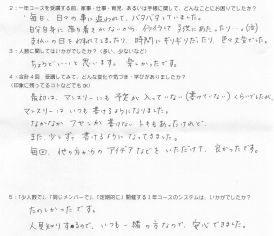 2：一年コースを受講する前、家事・仕事・育児、あるいは手帳に関して、どんなことにお困りでしたか？
毎日、日々の事に追われて、バタバタしていました。
自分自身に余りを
イライラして 子供にあたったり…(泣)
時間にギリギリだったり、色々大変でした。
3：人数に関してはいかがでしたか？（多い、少ないなど）
ちょうどいいと思います。 良かったです。
4：合計4回 受講してみて、どんな変化や気づき・学びがありましたか？
（印象に残ってるコトなどでもOK）
最初は、マンスリーにも予定が入っていない(書けていない)くらいでしたが、
マンスリーはいつも書けるようになりました。
なかなか 書けないトキもあったけれど、
また、少しずつ書けるようになってきました。
毎回、他の方からのアイデアなどをいただけて、良かったです。
5：「少人数で」、「同じメンバーで」、「定期的に」開催する1年コースのシステムは、いかがでしたか？
たのしかったです。
人見知りするので、いつも一緒の方なので、安心できました。